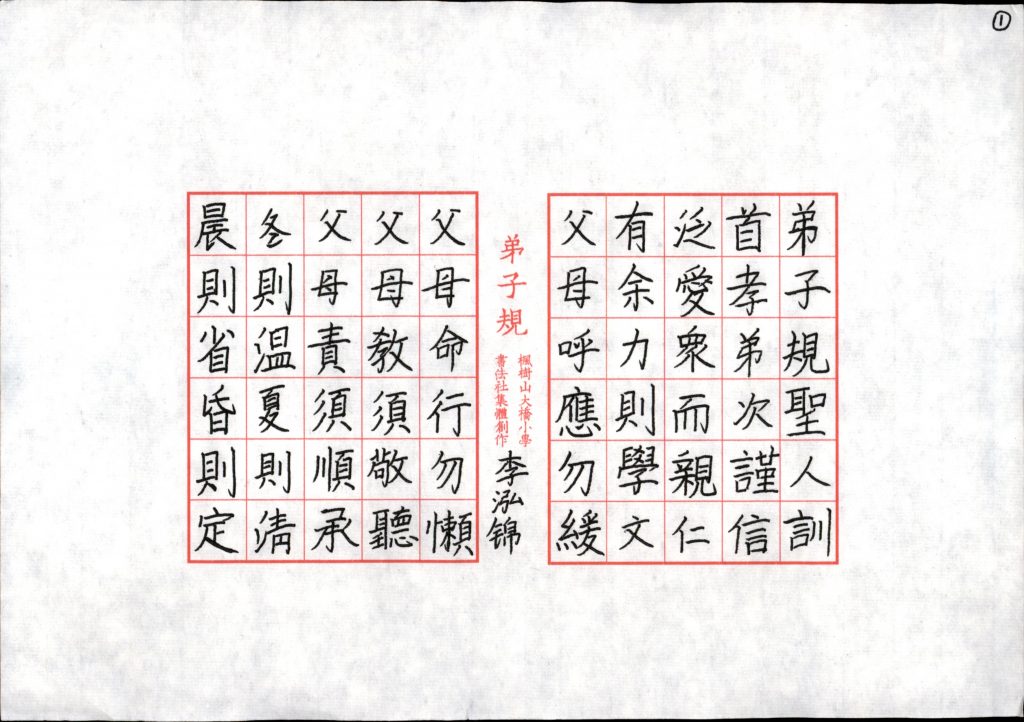 ①
弟子規聖人訓
首孝弟次謹信
泛愛眾而親仁
有余力則學文
父母呼應勿緩
弟子規
楓樹山大橋小學
書法社集體創作
李泓锦
父母命行勿懶
父母教須敬聽
父母責須順承
冬則溫夏則清
晨則省昏則定